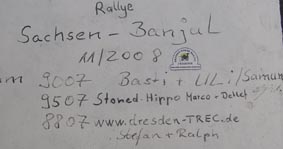 Rallye
Sachsen - Banjul
11/2008
9007 Basti + Ulli/Samun
9507 Stoned-Hippo Marco - Detlef
8807 www.dresden-TREC.de
Stefan + Ralph